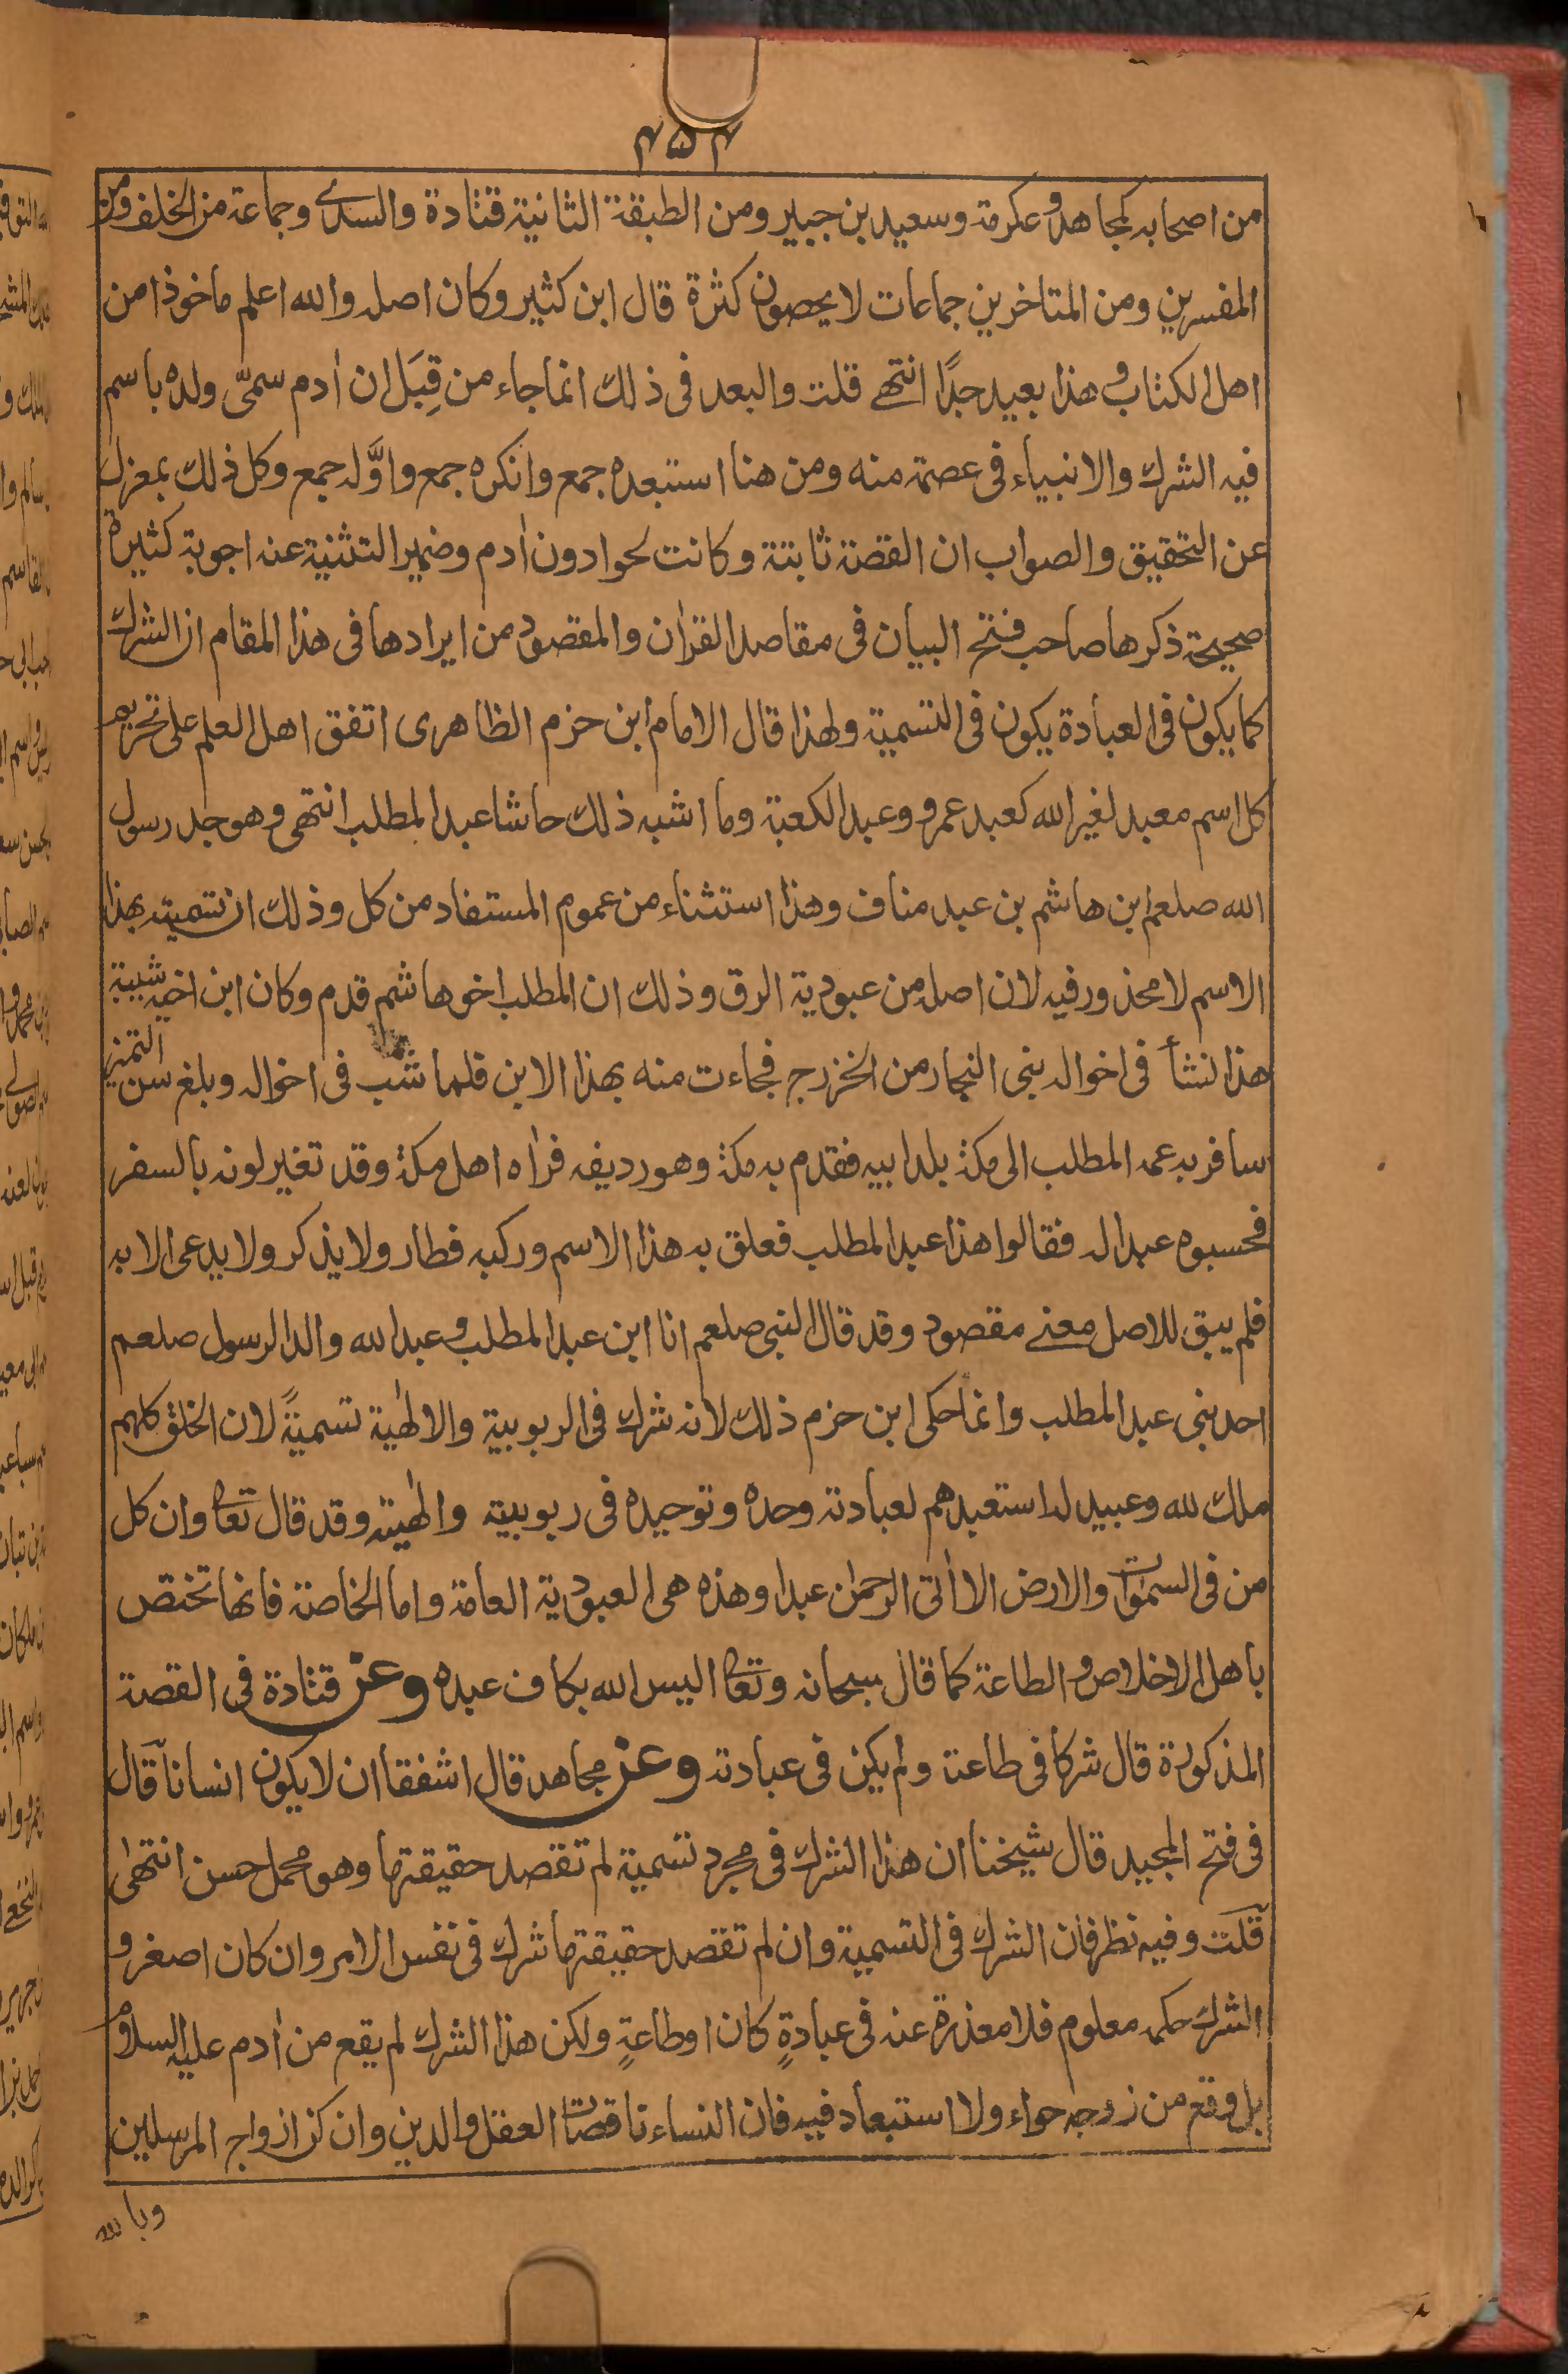 ۴۵۴
من اصحابه كمجاهد وعكرمة وسعيد بن جبير ومن الطبقة الثانية قتادة والسدي وجماعة من الخلف ومن
المفسرين ومن المتاخرين جماعات لا يحصون كثرة قال ابن كثير وكان اصله والله اعلم ماخوذا من
اهل الكتاب وهذا بعيد جدًا انتهے قلت والبعد فى ذلك انما جاء من قِبَل ان اٰدم سمّى ولده باسم
فيه الشرك والانبياء فى عصمة منه ومن هنا استبعده جمع وانكره جمع واوَّله جمع وكل ذلك بمعزل
عن التحقيق والصواب ان القصة ثابتة وكانت لحوا دون اٰدم وضمير التثنية عنه اجوبة كثيرة
صحيحة ذكرها صاحب فتح البيان فى مقاصد القراٰن والمقصود من ايرادها فى هذا المقام ان الشرك
كما يكون فى العبادة يكون فى التسمية ولهذا قال الامام ابن حزم الظاهرى اتفق اهل العلم على تحريم
كل اسم معبد لغير الله كعبد عمرو وعبد الكعبة وما اشبه ذلك حاشا عبد المطلب انتهى وهو جد رسول
الله صلعم ابن هاشم بن عبد مناف وهذا استثناء من عموم المستفاد من كل وذلك ان تسميته بهذا
الاسم لا محذور فيه لان اصله من عبودية الرق وذلك ان المطلب اخو هاشم قدم وكان ابن اخيه شيبة
هذا نشأ فى اخواله بنى النجار من الخزرج فجاءت منه بهذا الابن فلما شب فى اخواله وبلغ سن التميز
سافر به عمه المطلب الى مكة بلد ابيه فقدم به مكة وهو رديفه فراٰه اهل مكة وقد تغير لونه بالسفر
فحسبوه عبدا له فقالوا هذا عبد المطلب فعلق به هذا الاسم وركبه فطار ولا يذكر ولا يدعى الا به
فلم يبق للاصل معنے مقصود وقد قال النبى صلعم انا ابن عبد المطلب وعبد الله والد الرسول صلعم
احد بنى عبد المطلب وانما حكى ابن حزم ذلك لانه شرك فى الربوبية والالٰهية تسميةً لان الخلق كلهم
ملك لله وعبيد له استعبدهم لعبادته وحده وتوحيده فى ربوبيته والٰهيته وقد قال تعا وان كل
من فى السمٰوٰت والارض الا اٰتى الرحمٰن عبدا وهذه هى العبودية العامة واما الخاصة فانها تختص
باهل الاخلاص والطاعة كما قال سبحانه وتعا اليس الله بكاف عبده وعن قتادة فى القصة
المذكورة قال شركا فى طاعته ولم يكن فى عبادته وعن مجاهد قال اشفقا ان لا يكون انسانا قال
فى فتح المجيد قال شيخنا ان هذا الشرك فى مجرد تسمية لم تقصد حقيقتها وهو محمل حسن انتهىٰ
قلت وفيه نظر فان الشرك فى التسمية وان لم تقصد حقيقتها شرك فى نفس الامر وان كان اصغر و
الشرك حكمه معلوم فلا معذرة عنه فى عبادةٍ كان او طاعةٍ ولكن هذا الشرك لم يقع من اٰدم عليه السلام
بل وقع من زوجه حواء ولا استبعاد فيه فان النساء ناقصات العقل والدين وان كن ازواج المرسلين
وبالله